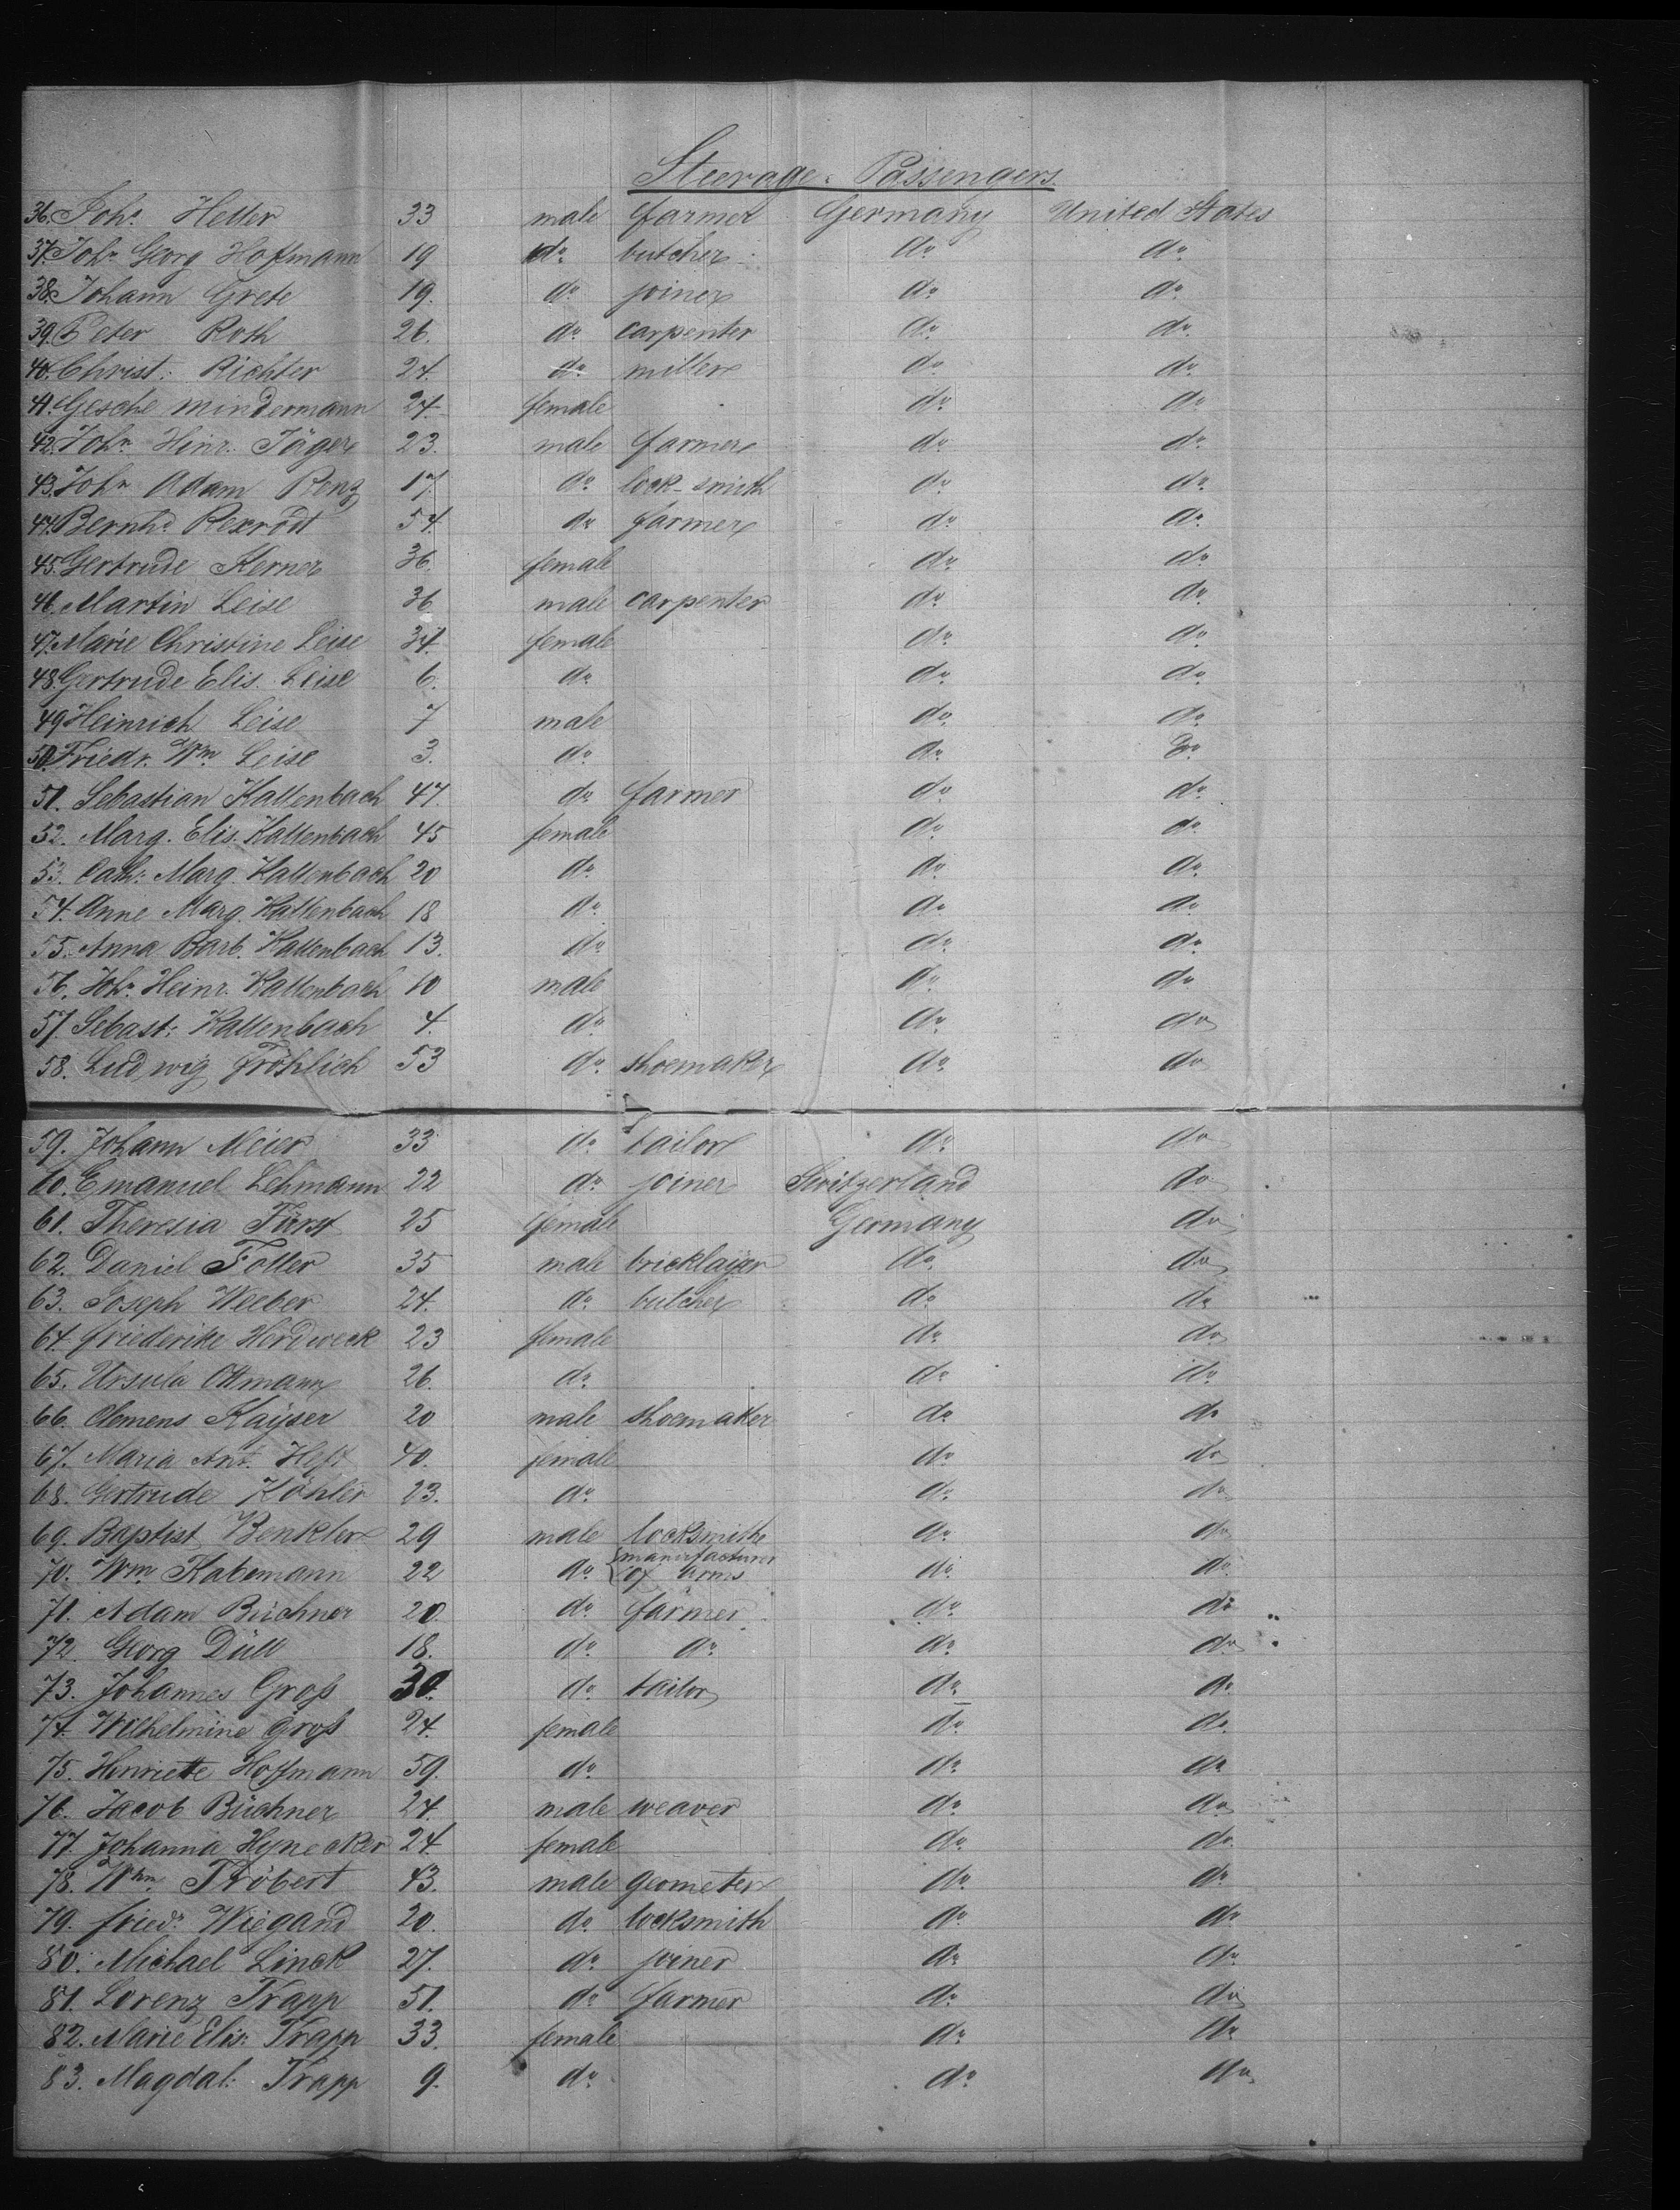 Steerage Passengers.
36. Johs. Heller 33 male farmer Germany United States
37. Johs. Georg Hoffmann 19 do. butcher do. do.
38. Johann Grete 19. do. joiner do. do.
39. Peter Roth 26. do. carpenter do. do.
40. Christ: Richter 24. do. miller do. do.
41. Gesche Mindermann 24. female do. do.
42. John Hinr. Jäger 23. male farmer do. do.
43. John Adam Ronz 17. do. lock-smith do. do.
44. Bernhd. Rexrodt 54. do. farmer do. do.
45. Gertrude Kerner 36. female do. do.
46. Martin Leise 36 male carpenter do. do.
47. Marie Christine Leise 34. female do. do.
48. Gertrude Elis. Leise 6. do. do. do.
49. Heinrich Leise 7 male do. do.
50. Friedr. Wm. Leise 3. do. do. Do.
51. Sebastian Kallenbach 47. do. farmer do. do.
52. Marg. Elis. Kallenbach 45 female do. do.
53. Cath: Marg. Kallenbach 20 do. do. do.
54. Anne Marg. Kallenbach 18 do. do. do.
55. Anna Barb. Kallenbach 13. do. do. do.
56. Johs. Heinr. Kallenbach 10 male do. do.
57. Sebast: Kallenbach 4. do. do. do.
58. Ludwig Fröhlich 53 do. shoemaker do. do.
59. Johann Meier 33 do. tailor do. do.
60. Emanuel Lehmann 22 do. joiner Switzerland do.
61. Theresia Fürst 25 female Germany do.
62. Daniel Foller 35 male bricklayer do. do.
63. Joseph Weeber 24. do. butcher do. do.
64. Friederike Herdweck 23 female do. do.
65. Ursula Ottmann 26. do. do. do.
66. Clemens Kayser 20 male shoemaker do. do.
67. Maria Ant. Heft 40. female do. do.
68. Gertrude Köhler 23. do. do. do.
69. Baptist Benkler 29 male locksmith do. do.
70. Wm. Kabemann 22 do. {manufacturer of arms do. do.
71. Adam Büchner 20. do. farmer do. do.
72. Georg Düll 18. do. do. do. do.
73. Johannes Groß 30. do. tailor do. do.
74. Wilhelmine Groß 24. female do. do.
75. Henriette Hoffmann 59. do. do. do.
76. Jacob Büchner 24. male weaver do. do.
77. Johanna Hynecker 24 female do. do.
78. Wm. Fröbert 43. male geometer do. do.
79. Friedr. Wiegand 20. do. locksmith do. do.
80. Michael Linck 27. do. joiner do. do.
81. Lorenz Trapp 51. do. farmer do. do.
82. Marie Elis: Trapp 33. female do. do.
83. Magdal: Trapp 9. do. do. do.